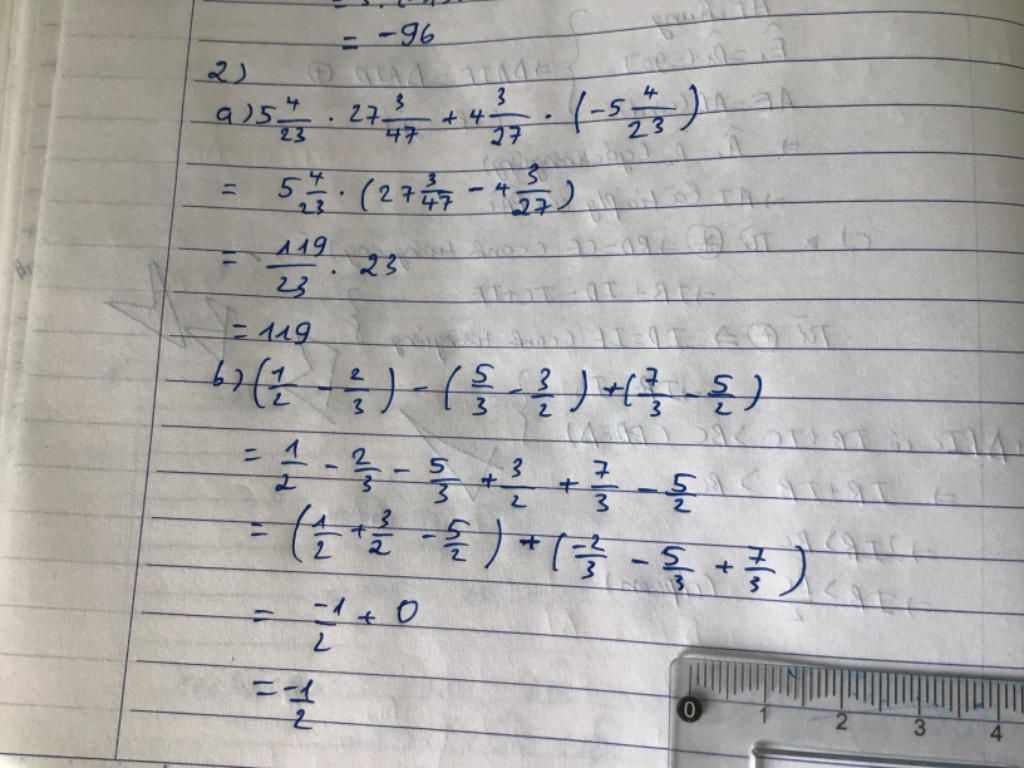 = -96
2)
a) 5 4/23 . 27 3/47 + 4 3/27 . (-5 4/23)
= 5 4/23 . (27 3/47 - 4 3/27)
= 119/23 . 23
= 119
b) (1/2 - 2/3) - (5/3 - 3/2) + (7/3 - 5/2)
= 1/2 - 2/3 - 5/3 + 3/2 + 7/3 - 5/2
= (1/2 + 3/2 - 5/2) + (-2/3 - 5/3 + 7/3)
= -1/2 + 0
= -1/2
0 1 2 3 4